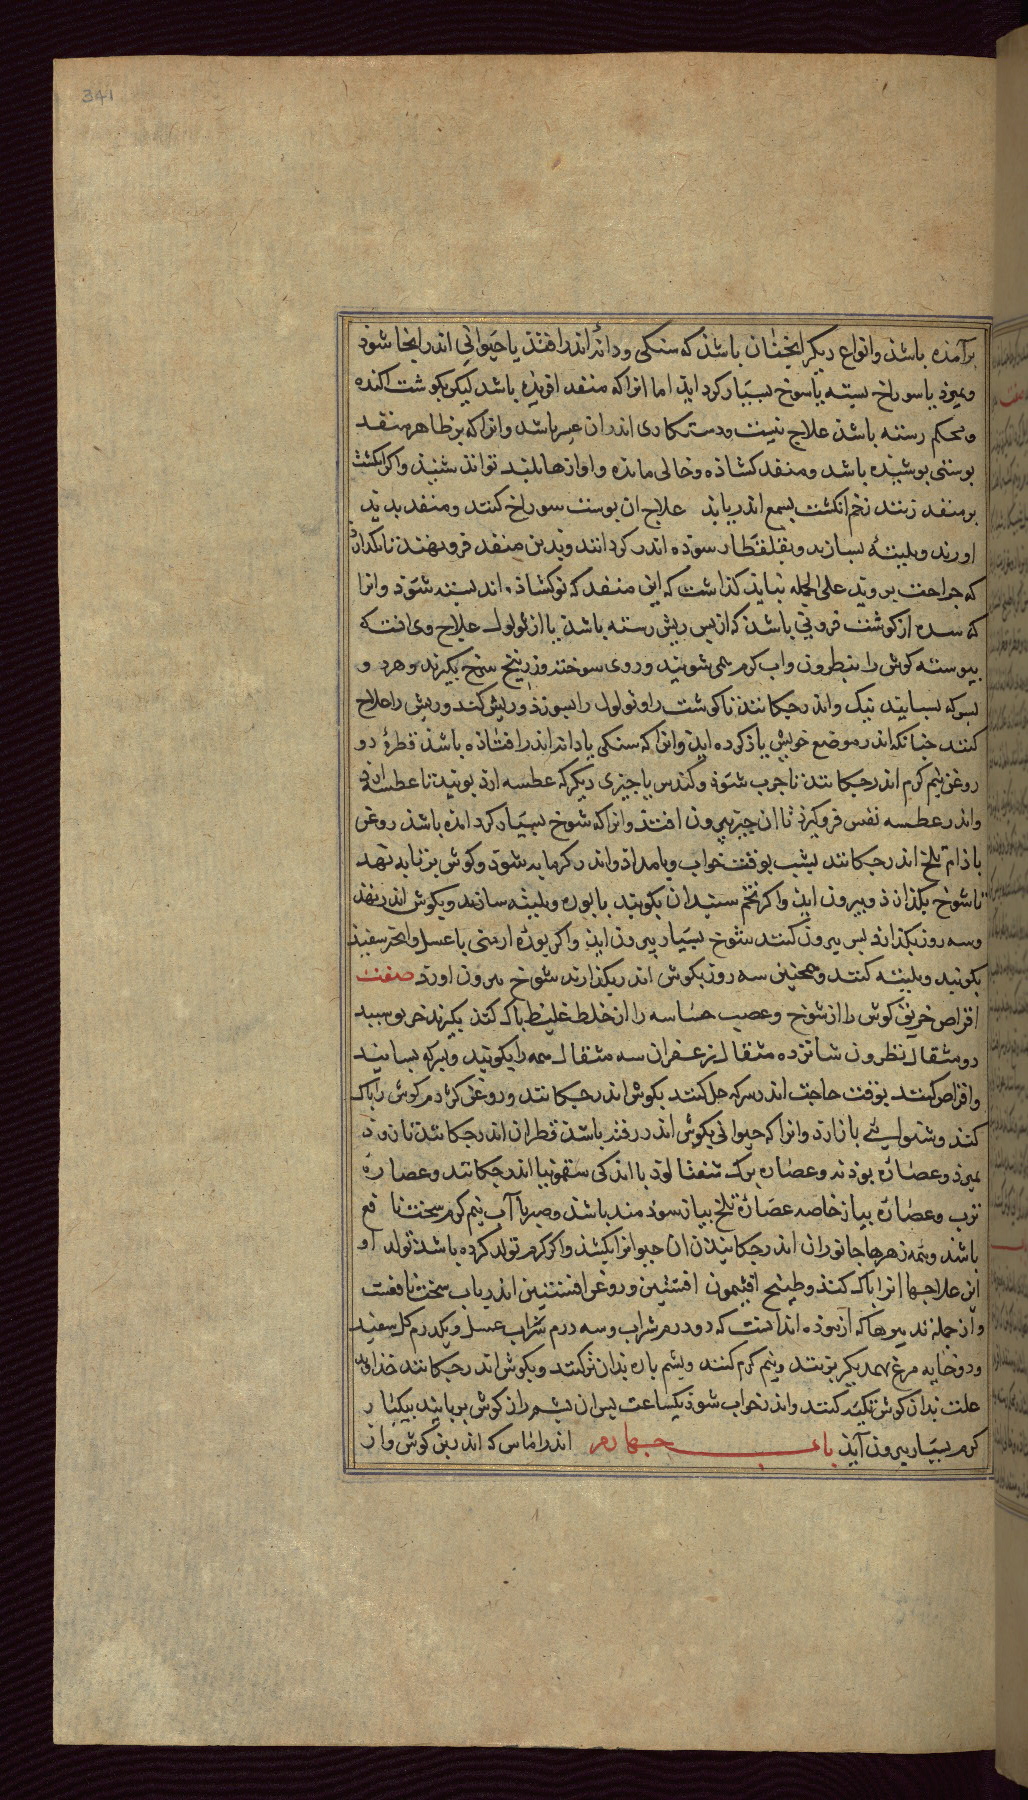 341
برآمذه باشذ وانواع دیکر ایخنان باشذ که سنکی ودانۀ اندر افتذ یا حیوانی اندر ایخا شوذ
وبمیرذ یا سوراخ بسته یا شوخ بسیار کرد ایذ اما انرا که منفد افریذه باشد لیکن بکوشت اکنده
ومحکم رسته باشذ علاج نیست ودستکاری اندران عسر باشد وانرا که بر ظاهر منفد
پوستی پوشیذه باشد ومنفد کشاذه وخالی مانده واوازها بلند تواند شنیذ واکر انکشت
بر منفد زنند زخم انکشت بسمع اندر یابذ علاج ان پوست سوراخ کنند ومنفد بدید
اورند وبلیتۀ بسازند وبقلقطار سوده اندر کردانند وبدین منفد فرو نهند تا نکذارد
که جراحت بروید علی الجمله نباید کذاشت که این منفد که نو کشاذه اند بسته شوذ وانرا
که سده از کوشت فزونی باشذ که از پس ریش رسته باشذ یا از ثولول علاج وی انست که
پیوسته کوش را بنطرون واب کرم همی شویند وروی سوخته وزرنیخ سرخ بکیرند وهر دو
بسرکه بسایند نیک واندر چکانند تا کوشت را وثولول را بسوزذ وریش کند وریش را علاج
کنند جنانکه اندر موضع خویش یاذ کرده ایذ وانرا که سنکی یا دانه اندر افتاذه باشذ قطرۀ دو
روغن نیم کرم اندر چکانند تا جرب شوذ وکندس یا جیزی دیکر که عطسه ارد بویند تا عطسه ارد
واندر عطسه نفس فرو کیرذ تا ان جیز بیرون افتذ وانرا که شوخ بسیار کرد امده باشذ روغن
باذام تلخ اندر چکانند بشب بوقت خواب وبامداذ اندر کرمابه شوذ وکوش بر تابه نهد
تا شوخ بکدازذ وبیرون ایذ واکر تخم سپندان بکویند با بوره وبلیته سازند وبکوش اندر نهند
وسه روز بکذارند پس بیرون کنند شوخ بسیار بیرون ایذ واکر بورۀ ارمنی با عسل وانجیر سفید
بکویند وبلیته کنند وهمجنین سه روز بکوش اندر بکذارند شوخ بیرون اورد صفت
اقراص خربق کوش را از شوخ وعصب حساسه را از خلط غلیظ پاک کند بکیرند خربق سپید
دو مثقال نطرون شانزده مثقال زعفران سه مثقال همه را بکویند وبسرکه بسایند
واقراص کنند بوقت حاجت اندر سرکه حل کنند بکوش اندر چکانند وروغن کژدم کوش را پاک
کند وشنوایی باز ارد وانرا که حیوانی بکوش اندر رفته باشذ قطران اندر چکانند تا زود
بمیرذ وعصارۀ بودنه وعصاره برک شفتالو با اندکی سقمونیا اندر چکانند وعصارۀ
ترب وعصارۀ پیاز خاصه عصارۀ تلخ پیاز سودمند باشد وصبر با آب نیم کرم سخت نافع
باشذ وهمه زهرها جانوران اندر چکانیذن ان حیوانرا بکشذ واکر کرم تولد کرده باشذ تولد او
این علاجها انرا پاک کنذ وطبیخ افتیمون افسنتین وروغن افسنتین اندرین باب سخت نافعست
وان جمله تدبیرها که ازموده اند انست که دو درم شراب وسه درم شراب عسل ویکدرم کل سفید
ودو خایه مرغ بهمدیکر بزنند ونیم کرم کنند وپشم پاره بدان تر کنند وبکوش اندر چکانند خداوند
علت بدان کوش تکیه کنند واندر خواب شود یکساعت پس ان پشم را از کوش بربایند بیکبار
کرم بسیار بیرون آید باب چهارم اندر اماس که اندر بن کوش وان